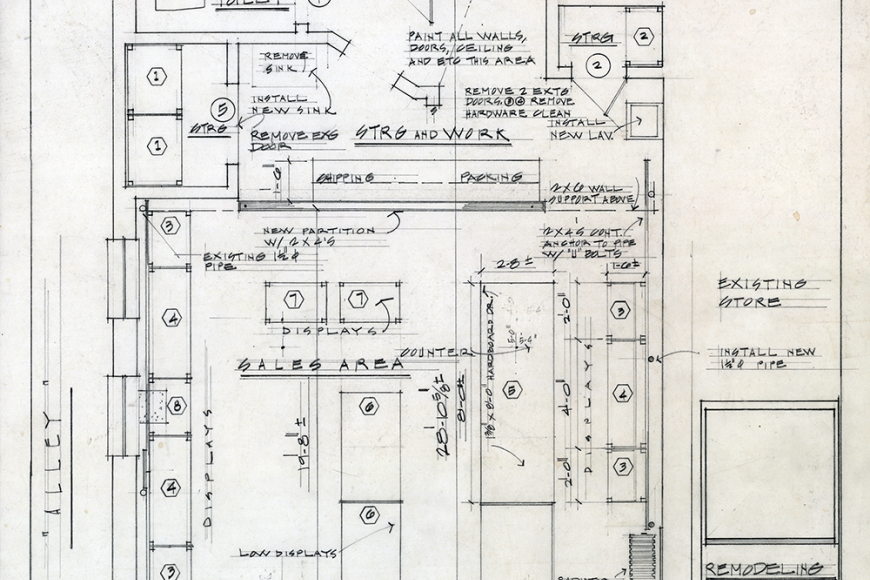 TOILET
PAINT ALL WALLS,
DOORS, CEILING
AND ETC THIS AREA
STRG
2
2
REMOVE
SINK
REMOVE 2 EXTG
DOORS. REMOVE
HARDWARE CLEAN
INSTALL
NEW LAV.
1
INSTALL
NEW SINK
5
STRG
STRG AND WORK
REMOVE EXG
DOOR
1
1'-6"
SHIPPING
PACKING
2X6 WALL
SUPPORT ABOVE
3
NEW PARTITION
W/ 2X4'S
2X4S CONT.
ANCHOR TO PIPE
W/ "U" BOLTS
EXISTING 1½"φ
PIPE
2'-8"±
1'-6"±
EXISTING
STORE
7
7
3
2'-0"
4
DISPLAYS
COUNTER
SALES AREA
INSTALL NEW
PIPE
"ALLEY"
8
DISPLAYS
6
19'-8"±
28'-10 5/8"±
8'-0"
HARDBOARD DR.
5
4'-0"
DISPLAYS
4
4
2'-0"
3
6
LOW DISPLAYS
3
REMODELING